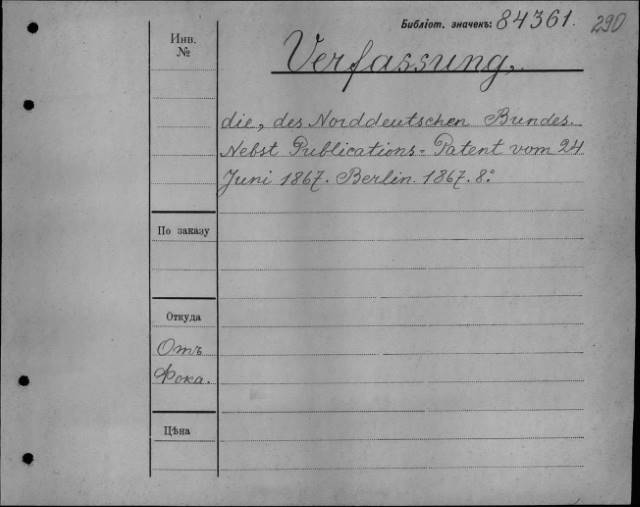 Библіот. значекъ: 84361. 290
Инв.
№
Verfassung,
die, des Norddeutschen Bundes.
Nebst Publications-Patent vom 24
Juni 1867. Berlin. 1867. 8:
По заказу
Откуда
Отъ
Фока.
Цѣна